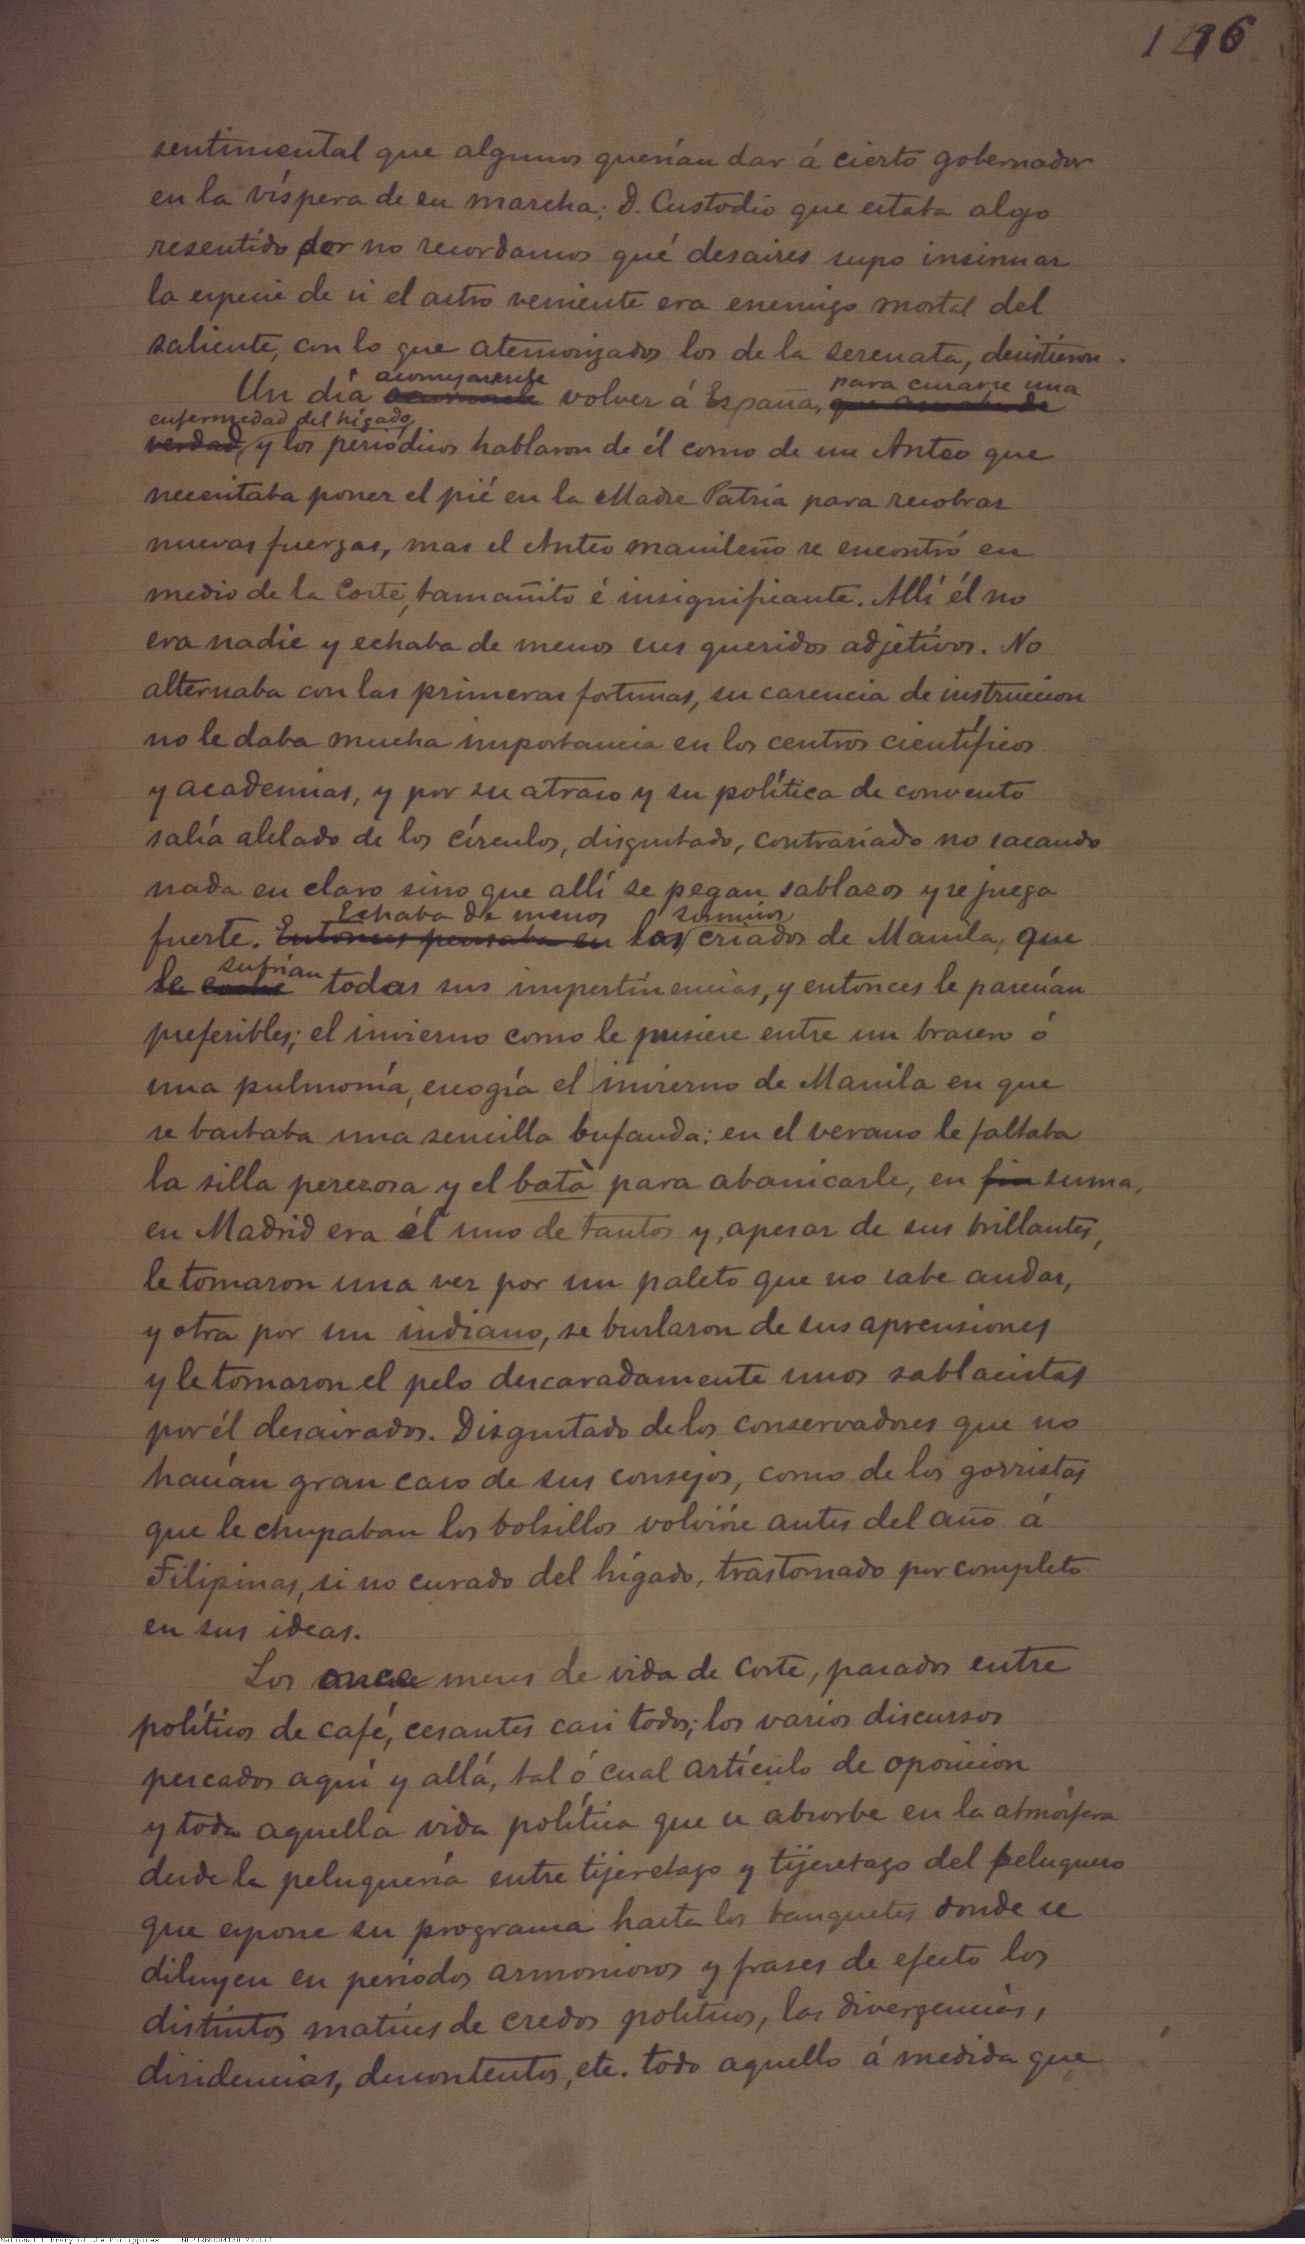 136
sentimental que algunos querían dar á cierto gobernador
en la víspera de su marcha; D. Custodio que estaba algo
resentido por no recordamos qué desaires supo insinuar
la especie de si el astro veniente era enemigo mortal del
saliente, con lo que atemorizados los de la serenata, desistieron.
aconsejáronle para curarse una
Un día volver á España,
enfermedad del hígado,
verdad, y los periódicos hablaron de él como de un Anteo que
necesitaba poner el pié en la Madre Patria para recobrar
nuevas fuerzas, mas el Anteo manileño se encontró en
medio de la Corte, tamañito é insignificante. Allí él no
era nadie y echaba de menos sus queridos adjetivos. No
alternaba con las primeras fortunas, su carencia de instruccion
no le daba mucha importancia en los centros científicos
y academias, y por su atraso y su política de convento
salía alelado de los círculos, disgustado, contrariado no sacando
nada en claro sino que allí se pegan sablazos y se juega
Echaba de menos sumisos
fuerte. Entonces pensaba en los criados de Manila, que
sufrían
le todas sus impertinencias, y entonces le parecían
preferibles; el invierno como le pusiese entre un brasero ó
una pulmonía, encogía el invierno de Manila en que
se bastaba una sencilla bufanda: en el verano le faltaba
la silla perezosa y el batà para abanicarle, en fin suma,
en Madrid era él uno de tantos y, apesar de sus brillantes,
le tomaron una vez por un paleto que no sabe andar,
y otra por un indiano, se burlaron de sus aprensiones
y le tomaron el pelo descaradamente unos sablacistas
por él desairados. Disgustado de los conservadores que no
hacían gran caso de sus consejos, como de los gorristas
que le chupaban los bolsillos volvióse antes del año á
Filipinas, si no curado del hígado, trastornado por completo
en sus ideas.
Los once meses de vida de Corte, pasados entre
políticos de café, cesantes casi todos; los varios discursos
pescados aquí y allá, tal ó cual artículo de oposicion
y toda aquella vida política que se absorbe en la atmósfera
desde la peluquería entre tijeretazo y tijeretazo del peluquero
que espone su programa hasta los banquetes donde se
diluyen en periodos armoniosos y frases de efecto los
distintos matices de credos políticos, las divergencias,
disidencias, descontentos, etc. todo aquello á medida que